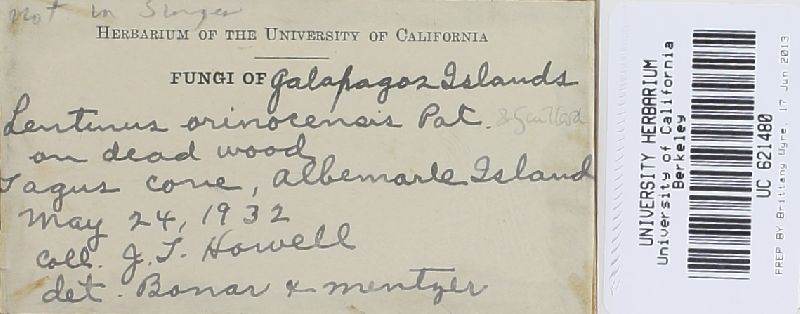 not in Singer
HERBARIUM OF THE UNIVERSITY OF CALIFORNIA
FUNGI OF Galapagos Islands
Lentinus orinocensis Pat. & Gaillard
on dead wood
Tagus Cove, Albemarle Island
May 24, 1932
coll. J. T. Howell
det. Bonar & Mentzer
UNIVERSITY HERBARIUM
University of California
Berkeley
UC 621480
PREP BY Brittany Wyre, 17 Jun 2013